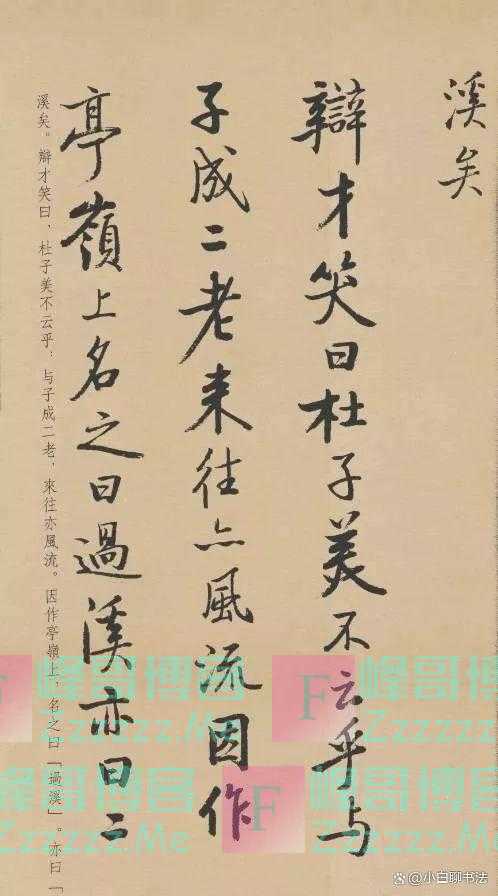 溪矣
辯才笑曰杜子美不云乎与
子成二老来往亦風流因作
亭嶺上名之曰過溪亦曰二
溪矣。辯才笑曰、杜子美不云乎：与子成二老，來往亦風流。因作亭嶺上，名之曰「過溪」。亦曰「
峰哥博客
Zzzzzz.Me
F
峰哥博客
Zzzzzz.Me
F
峰哥博客
Zzzzzz.Me
@小白聊书法